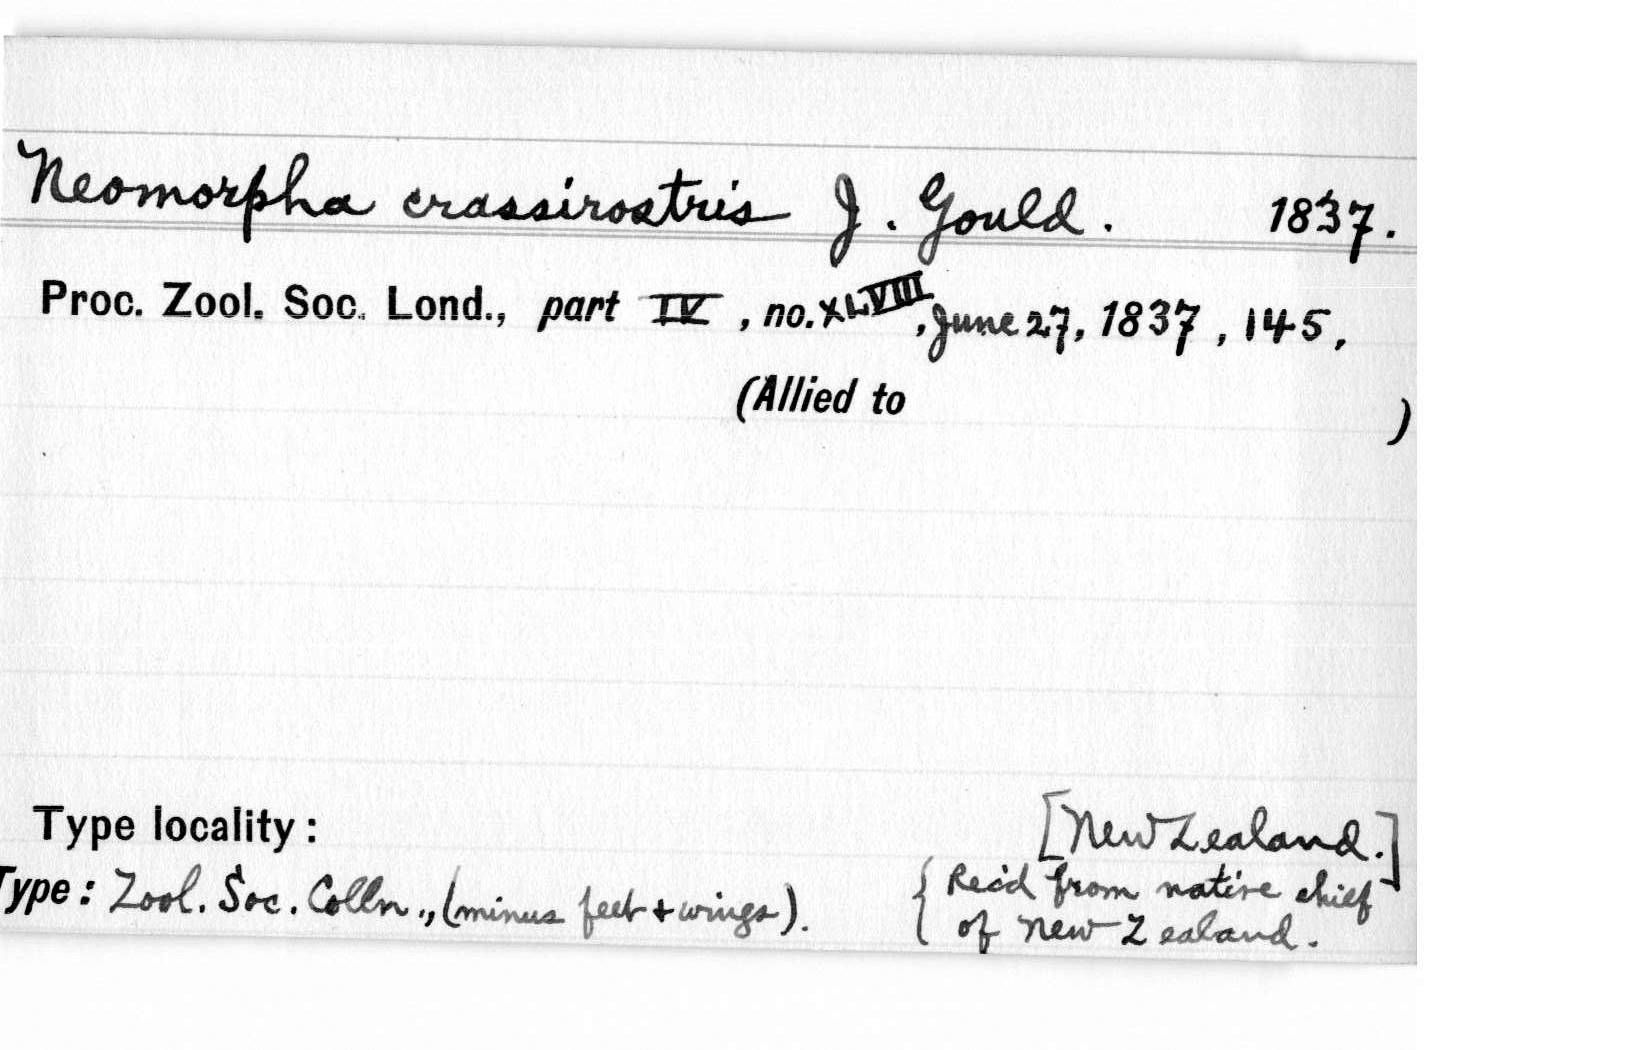 Neomorpha crassirostris J. Gould. 1837.
Proc. Zool. Soc. Lond., part IV, no. XLVIII, June 27, 1837, 145,
(Allied to )
Type locality: [New Zealand.]
Type: Zool. Soc. Colln., (minus feet + wings). { Rec'd from native chief
of New Zealand.